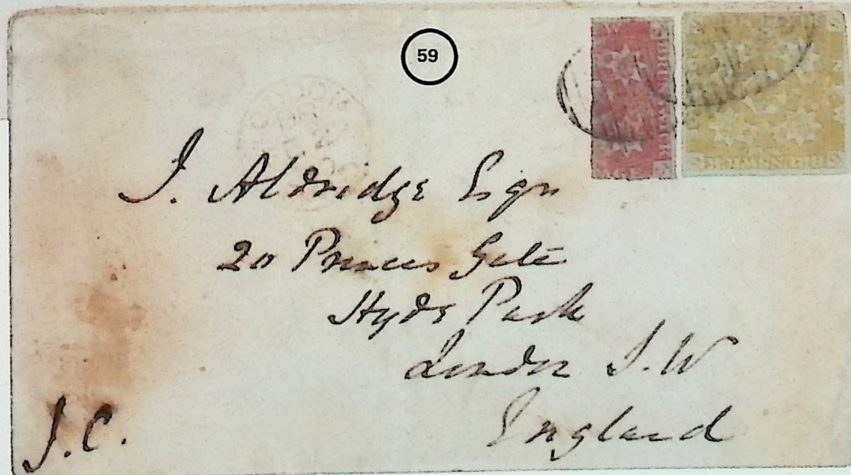 59
J. Aldridge Esqr
20 Princes Gate
Hyde Park
London S.W
England
J.C.